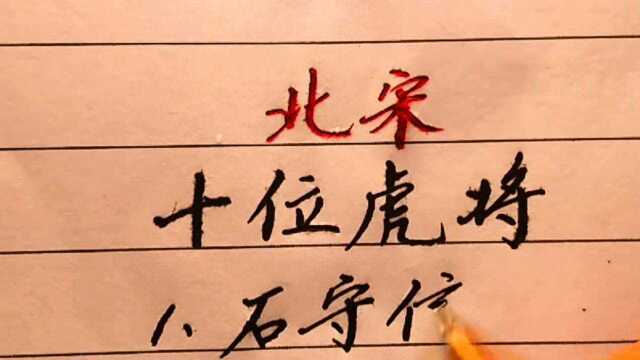 北宋
十位虎将
1、石守信